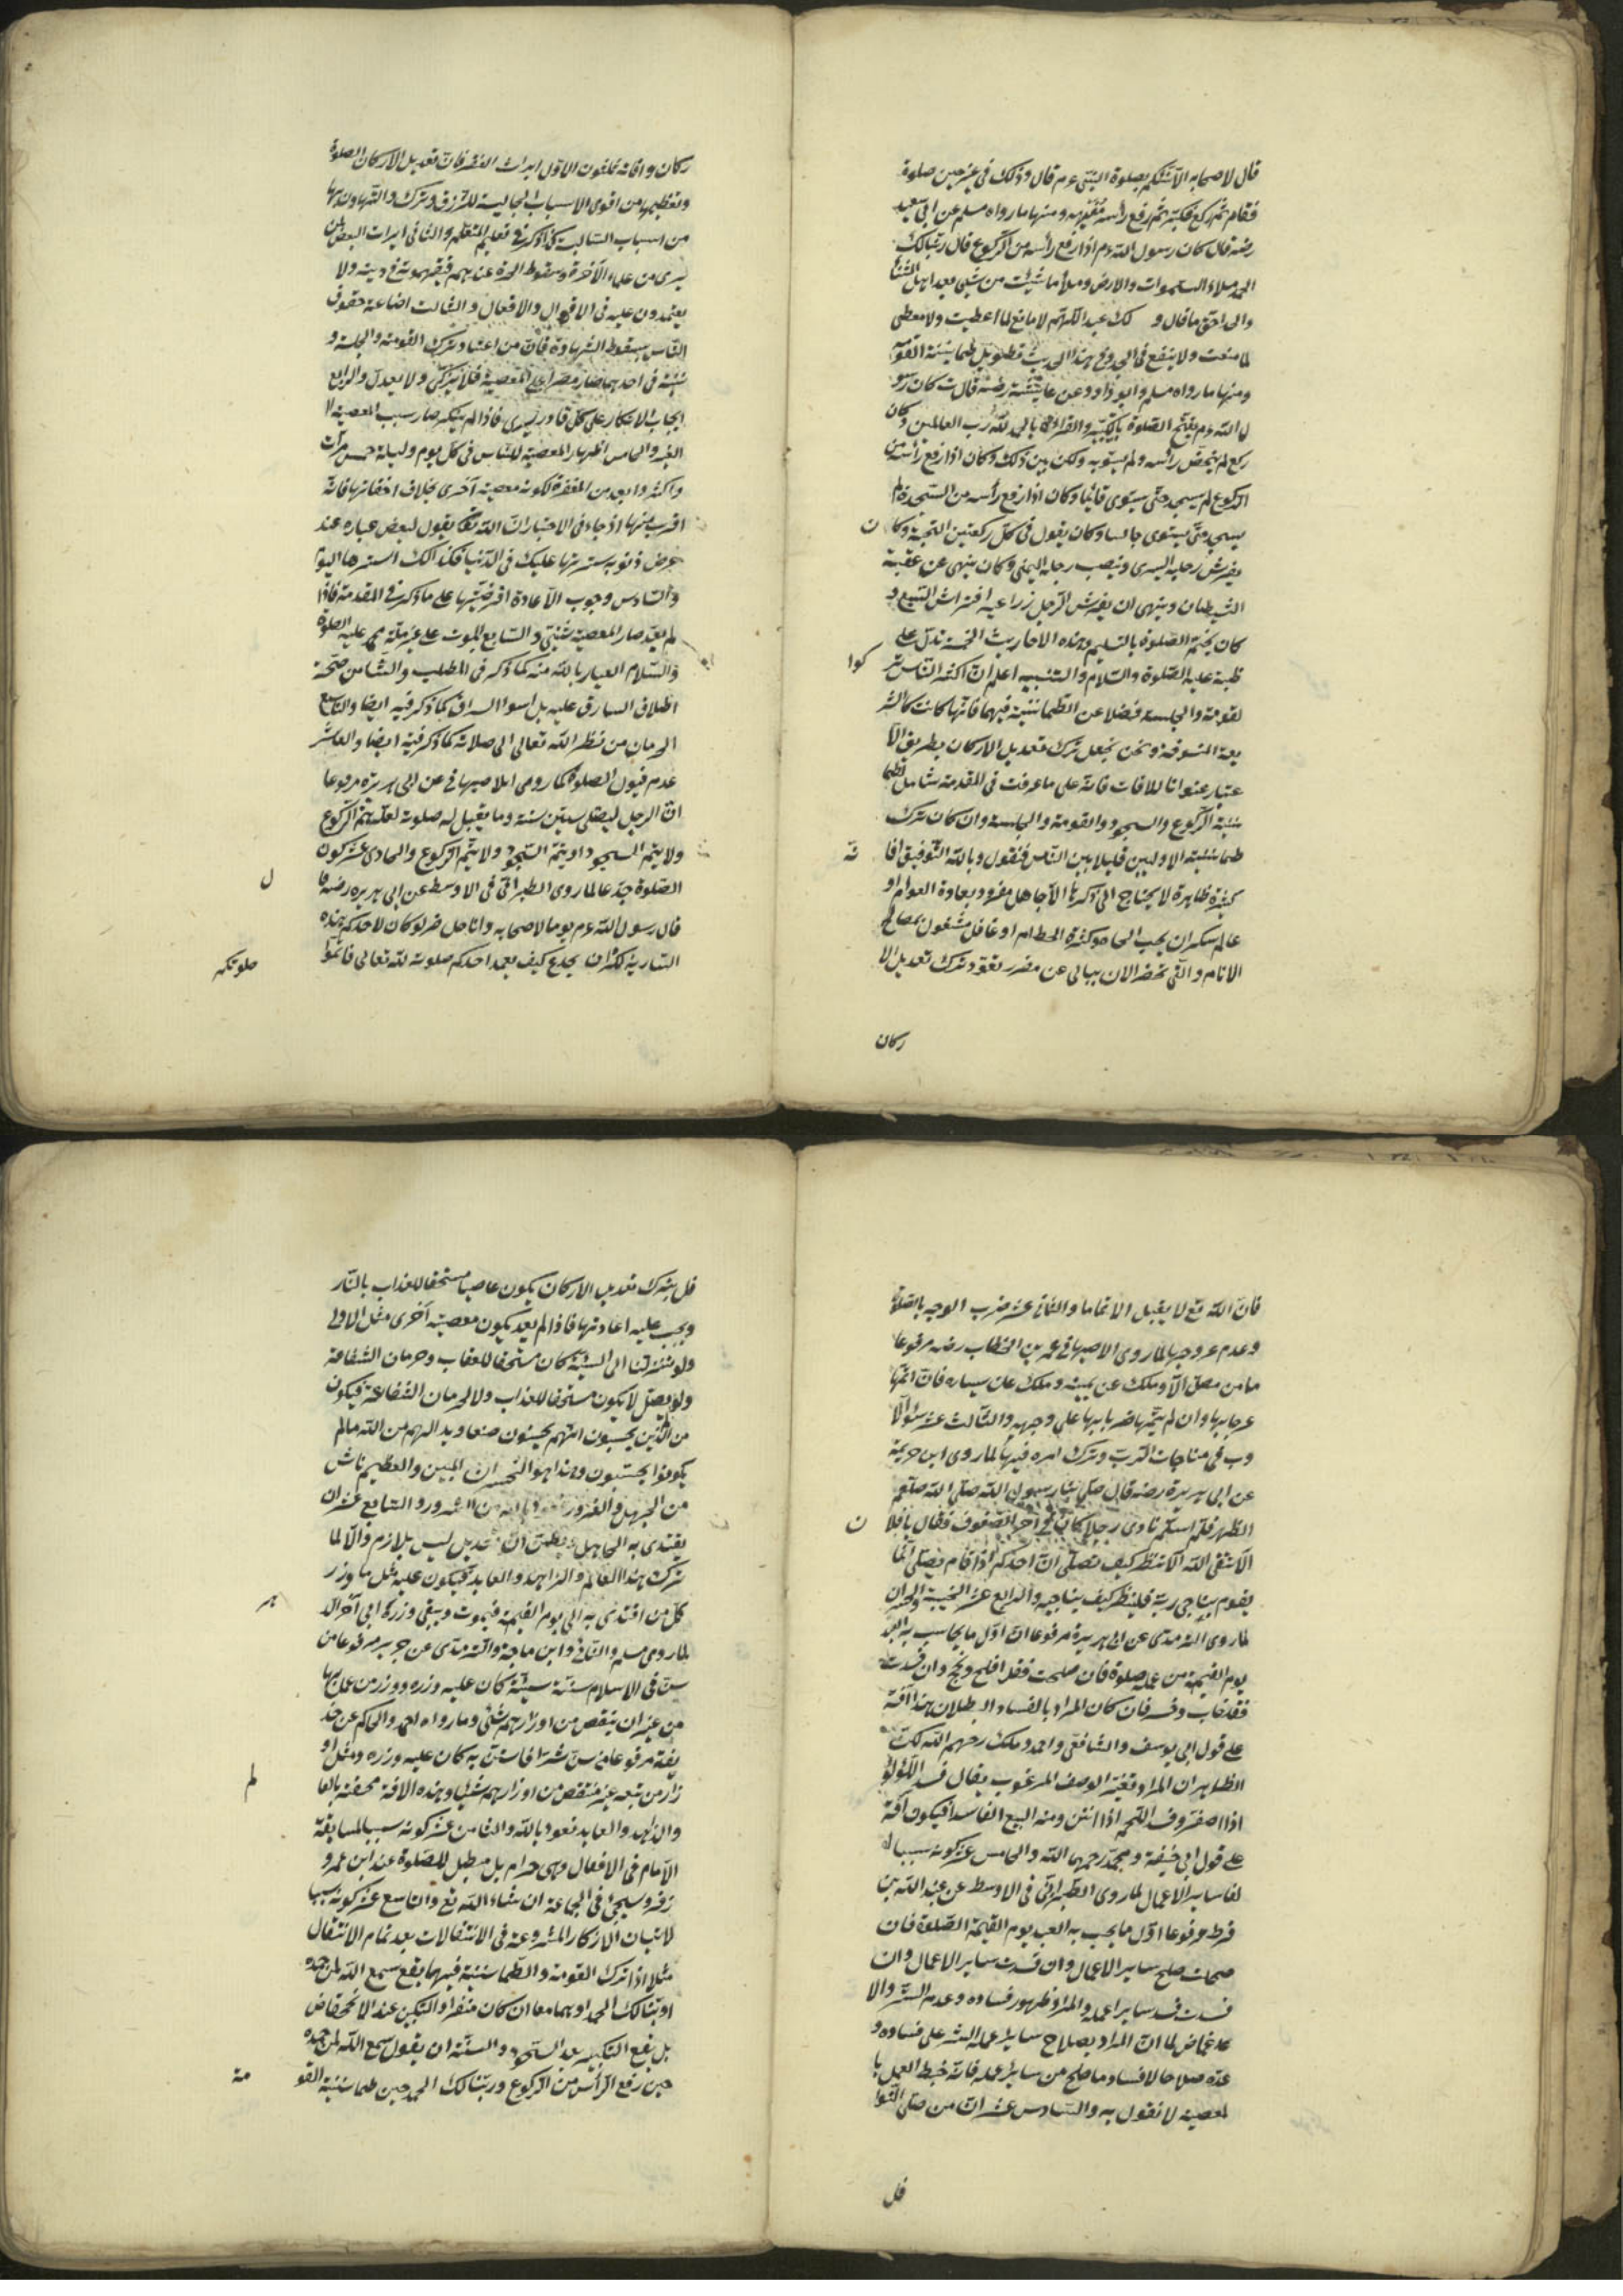 قال لاصحابه الا انبئكم بصلوة النبى ءم قال وذلك فى غير حين صلوة
فقام ثم ركع فكبر ثم رفع رأسه ومنها ما رواه مسلم عن ابى سعيد
رضه قال كان رسول الله ءم اذا رفع رأسه من الركوع قال ربنا لك
الحمد ملاء السموات والارض وملأ ما شئت من شئ بعد اهل الثنا
والمجد احق ما قال و لك عبد اللهم لا مانع لما اعطيت ولا معطى
لما منعت ولا ينفع ذا الجد وفى هذا الحديث تطويل طمانينة القومة
ومنها ما رواه مسلم وابو داود عن عايشة رضه قالت كان رسو
ل الله ءم يفتتح الصلوة بالتكبير والقراءة بالحمد لله رب العالمين وكان
ركع لم يشخص رأسه ولم يصوبه ولكن بين ذلك وكان اذا رفع رأسه من
الركوع لم يسجد حتى يستوى قائما وكان اذا رفع رأسه من السجدة لم
يسجد حتى يستوى جالسا وكان يقول فى كل ركعتين التحية وكا ن
يفرش رجله اليسرى وينصب رجله اليمنى وكان ينهى عن عقبة
الشيطان وينهى ان يفترش الرجل ذراعيه افتراش السبع و
كان يختم الصلوة بالتسليم وهذه الاحاديث الخمسة تدل على
ظبة عليه الصلوة والسلام والتنبيه اعلم ان اكثر الناس تر كوا
لقومة والجلسة فضلا عن الطمانينة فيهما فانها كانت كالشر
يعة المنسوخة ونحن نجعل ترك تعديل الاركان بطريق الا
عتبار عنوانا للافات فانه على ما عرفت فى المقدمة شامل لطما
نينة الركوع والسجود والقومة والجلسة وان كان ترك
طمانينة الاوليين قليلا بين الناس فنقول وبالله التوفيق افا ته
كثيرة ظاهرة لا يحتاج الى ذكرها الا جاهل مغرور بعادة العوام او
عالم سكران بحب الجاه وكثرة الحطام او غافل مشغون بمصالح
الانام والتى تحضر الان ببالى من ضرر تعود ترك تعديل الا
ركان
ركان وافاته ثلثون الاول ايراث الفقر فان تعديل الاركان الصلوة
وتعظيمها من اقوى الاسباب الجالبة للرزق وترك والتهاون بها
من اسباب السالبة كما ذكر فى تعليم المتعلم والثانى ايراث البغض لمن
يرى من علماء الآخرة وسقوط الحرمة عندهم فيتهمونه فى دينه ولا
يعتمدون عليه فى الاقوال والافعال والثالث اضاعة حقوق
الناس بسقوط الشهادة فان من اعتاد ترك القومة والجلسة و
نينة فى احدهما صار مصرا على المعصية فلا يزكى ولا يعدل والرابع
ايجاب الانكار على كل قادر يرى فاذا لم ينكر صار سبب المعصية لا
الغير والخامس اظهار المعصية للناس فى كل يوم وليلة خمس مرات
واكثر وابعد من المغفرة لكونه معصية آخرى بخلاف اخفائها فانه
اقرب منها اذ جاء فى الاخبار ان الله تعا يقول لبعض عباده عند
عرض ذنوبه سترتها عليك فى الدنيا فكذالك استرها اليوم
والسادس وجوب الاعادة افرضيتها على ما ذكر فى المقدمة فاذا
لم يعد صار المعصية ثنتين والسابع الموت على غير ملة محمد عليه الصلوة
والسلام العياذ بالله منه كما ذكر فى المطلب والثامن صحة
اطلاق السارق عليه بل اسوا السراق كما ذكر فيه ايضا والتاسع
الحرمان من نظر الله تعالى الى صلاته كما ذكر فيه ايضا والعاشر
عدم قبول الصلوة لما روى الاصبهانى عن ابى هريرة مرفوعا
ان الرجل ليصلى ستين سنة وما يقبل له صلوة لعله يتم الركوع
ولا يتم السجود او يتم السجود ولا يتم الركوع والحادى عشر كون
الصلوة خداعا لما روى الطبرانى فى الاوسط عن ابى هريره رضه قا ل
قال رسول الله ءم يوما لاصحابه وانا حاضر لو كان لاحدكم هذه
السارية لكره ان يجدع كيف يعمد احدكم صلوته لله تعالى فاتموا صلوتكم
فان الله تع لا يقبل الا تماما والثانى عشر ضرب الوجه بالصلوة
وعدم عروجها لما روى الاصبهانى عمر بن الخطاب رضه مرفوعا
ما من مصل الا وملك عن يمينه وملك عن يساره فان اتمها
عرجا بها وان لم يتمها ضربا بها على وجهه والثالث عشر سوء الا
دب فى مناجات الرب وترك امره فيها لما روى ابن خزيمة
عن ابى هريرة رضه قال صلى بنا رسول الله صلى الله صلعم
الظهر فلما سلم نادى رجلا كان فى آخر الصفوف فقال يا فلا ن
الا تتقى الله الا تنظر كيف تصلى ان احدكم اذا قام يصلى انما
يقوم يناجى ربه فلينظر كيف يناجيه والرابع عشر الخيبة والخسران
لما روى الترمذى عن ابى هريرة مرفوعا ان اول ما يحاسب به العبد
يوم القيمة من عمله صلوة فان صلحت فقد افلح ونجح وان فسدت
فقد خاب وخسر فان كان المراد بالفساد البطلان هذا آفة
على قول ابى يوسف والشافعى واحمد وملك رحمهم الله لكن
الظاهر ان المراد تغير الوصف المرغوب يقال فسد اللؤلؤ
اذا اصفر وفسد اللحم اذا انتن ومنه البيع الفاسد فيكون آفة
على قول ابى حنيفة ومحمد رحمهما الله والخامس عشر كونه سببا
لفساد ساير الاعمال لما روى الطبرانى فى الاوسط عن عبد الله بن
قرط مرفوعا اول ما يحسب به العبد يوم القيمة الصلوة فان
صلحت صلح ساير الاعمال وان فسدت ساير الاعمال وان
فسدت فسد ساير اعماله والمراد ظهور فساده وعدم الستر والا
غماض لما ان المراد بصلاح ساير عمله الستر على فساده و
عده صلاحا لا فساد ما صلح من ساير عمله فانه حبط العمل با
لمعصية لا نقول به والسادس عشر ان من صلى النوا
فل
فل بترك تعديل الاركان يكون عاصيا مستحقا للعذاب بالنار
ويجب عليه اعادتها فاذا لم يعد يكون معصية آخرى مثل الاولى
ولو نزلنا الى السنية كان مستحقا للعقاب وحرمان الشفاعة
ولو لم يصل لا يكون مستحقا للعذاب ولا لحرمان الشفاعة فيكون
من الذين يحسبون انهم يحسنون صنعا وبدا لهم من الله مالم
يكونوا يحتسبون وهذا هو الخسران المبين والعظيم ناش
من الجهل والغرور نعوذ بالله من الشرور والسابع عشر ان
يقتدى به الجاهل ويظن ان تعديل ليس بلازم والا لما
ترك هذا العالم والزاهد والعابد فيكون عليه مثل ما وزر
كل من اقتدى به الى يوم القيمة فيموت ويبقى وزره الى آخر الد هر
لما روى مسلم والنسائى وابن ماجة والترمذى عن جرير مرفوعا من
سن فى الاسلام سنة سيئة كان عليه وزره ووزر من عمل بها
من غير ان ينقص من اوزارهم شئ وما رواه احمد والحاكم عن حذ
يفة مرفوعا من سن شرا فاستن به كان عليه وزره ومثل او
زار من تبعه غير منتقص من اوزارهم شيئا وهذه الافة مختصة بالعا لم
والزاهد والعابد نعوذ بالله والثامن عشر كونه سببا لمسابقة
الامام فى الافعال وهى حرام بل مبطل للصلوة عند ابن عمر و
زفر وسيجئ فى الجماعة ان شاء الله تع والتاسع عشر كونه سببا
لاتيان الاذكار المشروعة فى الانتقالات بعد تمام الانتقال
مثلا اذا ترك القومة والطمانينة فيهما يقع سمع الله لمن حمده
او ربنا لك الحمد او هما معا ان كان منفردا والتكبير عند الانخفاض
بل يقع التكبير بعد السجود والسنة ان يقول سمع الله لمن حمده
حين رفع الرأس من الركوع وربنا لك الحمد حين طمانينة القو مة